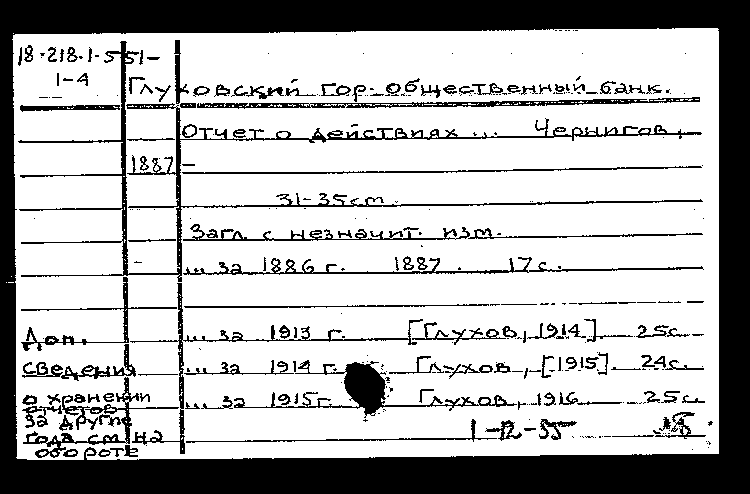 18-218-1-5 51-
1-4
Глуховский гор. общественный банк.
Отчет о действиях... Чернигов,
1887 -
31-35 см.
Загл. с незначит. изм.
... за 1886 г. 1887. 17 с.
... за 1913 г. [Глухов, 1914]. 25 с.
Доп.
... за 1914 г. Глухов, [1915]. 24 с.
сведения
... за 1915 г. Глухов, 1916. 25 с.
о хранении
отчетов
за другие
года см. на
обороте
1-12-55